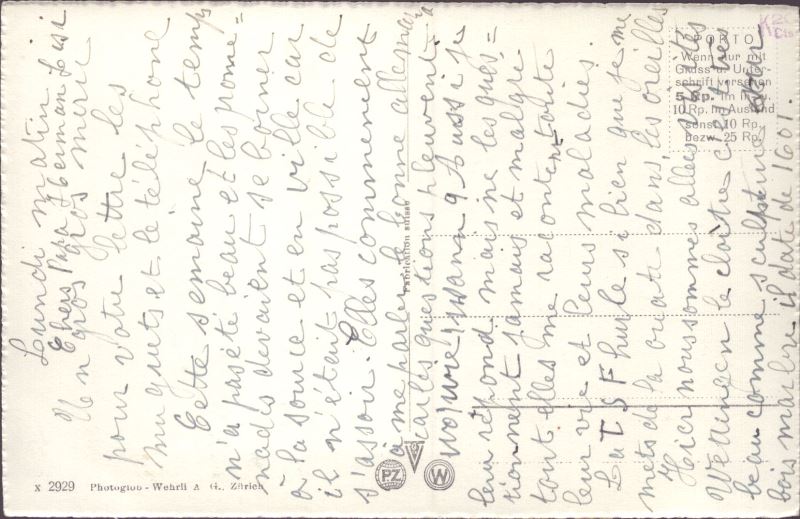 Lundi matin
Chers Papa, Hermann, Lisi
Un gros merci
pour votre lettre les
muguets et le téléphone
Cette semaine le temps
n'a pas été beau et les prome-
nades devaient se borner
à la source et en ville car
il n'était pas possible de
s'asseoir. Elles commencent
à me parler la bonne allemand
car les questions pleuvent
Aussi je
leur répond mais ne les ques=
tionnent jamais et malgré
tout elles me racontent toute
leur vie et leurs maladies.
La TSF hurle si bien que je me
mets de la ouate dans les oreilles
Hier nous sommes allées visiter
Wettingen le cloître c'est très
beau comme sculpture sur
bois marbre il date de 1601.
PORTO
Wenn nur mit
Gruss u. Unter-
schrift versehen
5 Rp. im Inland,
10 Rp. im Ausland
sonst 10 Rp.
bezw. 25 Rp.
Fabrication suisse
PZ
W
X 2929 Photoglob - Wehrli A. G., Zürich